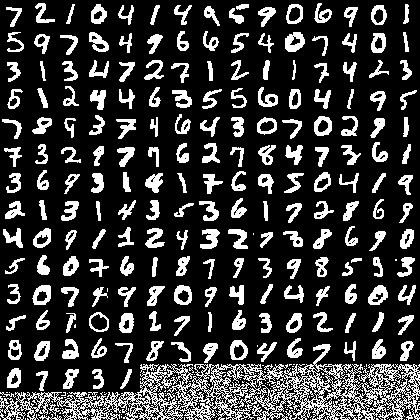 7 2 1 0 4 1 4 9 5 9 0 6 9 0 1
5 9 7 3 4 9 6 6 5 4 0 7 4 0 1
3 1 3 4 7 2 7 1 2 1 1 7 4 2 3
5 1 2 4 4 6 3 5 5 6 0 4 1 9 5
7 8 9 3 7 4 6 4 3 0 7 0 2 9 1
7 3 2 9 7 7 6 2 7 8 4 7 3 6 1
3 6 9 3 1 4 1 7 6 9 5 0 4 1 9
2 1 3 1 4 3 5 3 6 1 7 2 8 6 9
4 0 9 1 1 2 4 3 2 7 3 8 6 9 0
5 6 0 7 6 1 8 7 9 3 9 8 5 9 3
3 0 7 4 9 8 0 9 4 1 4 4 6 0 4
5 6 1 0 0 1 7 1 6 3 0 2 1 1 7
8 0 2 6 7 8 3 9 0 4 6 7 4 6 8
0 7 8 3 1